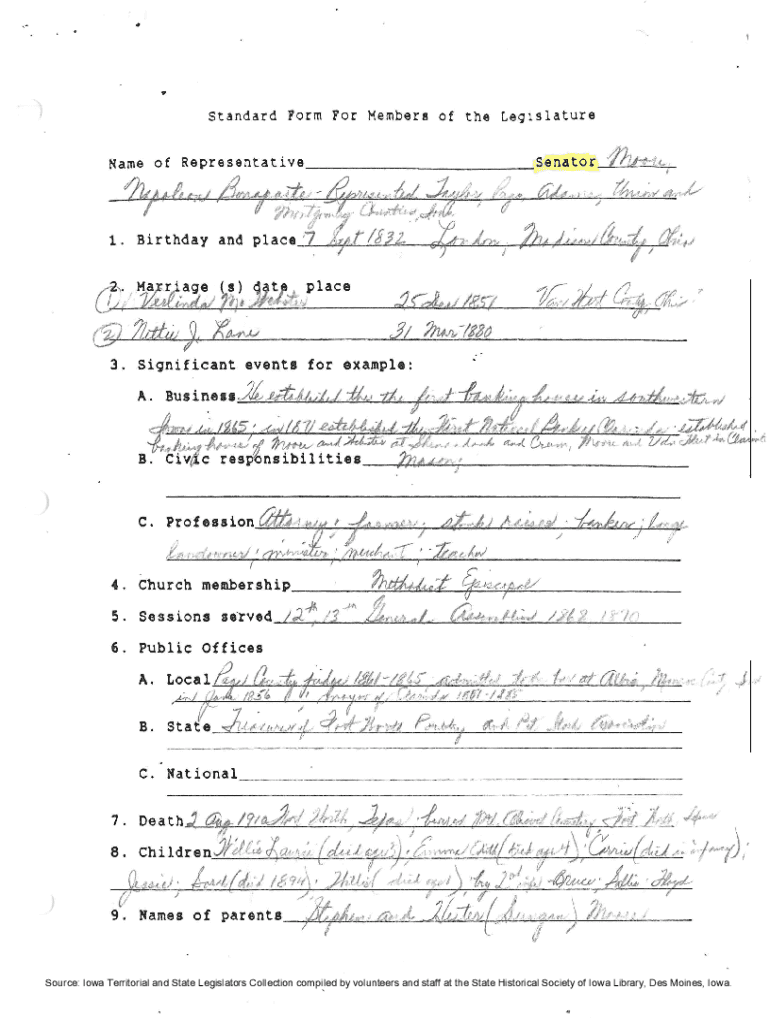 Standard Form For Members of the Legislature
Name of Representative Senator Moore,
Napoleon Bonaparte - Represented Taylor, Page, Adams, Union and
Montgomery Counties, Iowa
1. Birthday and place 7 Sept 1832 London, Madison County, Ohio
2. Marriage (s) date place
(1) Verlinda M. Webster 25 Dec 1851 Van Wert County, Ohio
(2) Nettie J. Lane 31 Mar 1880
3. Significant events for example:
A. Business He established the the first banking house in southwestern
Iowa in 1865; in 1871 established the First National Bank of Clarinda - established
banking houses of Moore and Webster at Shenandoah and Cream, Moore and Van
B. Civic responsibilities Mason;
C. Profession Attorney; farmer; stock raised; banker; large
landowner; minister; merchant; teacher
4. Church membership Methodist Episcopal
5. Sessions served 12th, 13th General Assemblies 1868, 1870
6. Public Offices
A. Local Page County judge 1861-1865 admitted to the bar at Albia, Monroe County,
in June 1856 mayor of Clarinda 1881-1885
B. State Treasurer of Fort Worth Poultry and Pet Stock Association
C. National
7. Death 2 Aug 1910 Fort Worth, Texas; buried Mt. Olivet Cemetery Fort Worth, Texas
8. Children Willis Laurie (died age); Emma Edith (died age 4); Carrie (died in infancy);
Jessie; (died 1894); (died age); by 2nd wife Bruce; Sallie; Floyd
9. Names of parents Stephen and Hester Moore
Source: Iowa Territorial and State Legislators Collection compiled by volunteers and staff at the State Historical Society of Iowa Library, Des Moines, Iowa.